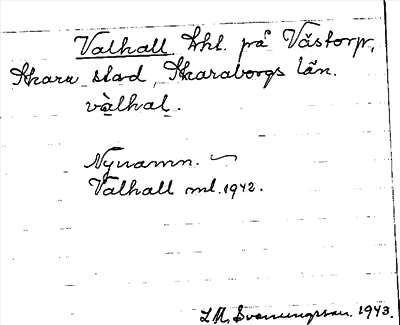 Valhall lht. på Västorp,
Skara stad, Skaraborgs län.
vàlhal.
Nynamn.
Valhall ml. 1942.
L M, Svenningsson. 1943.